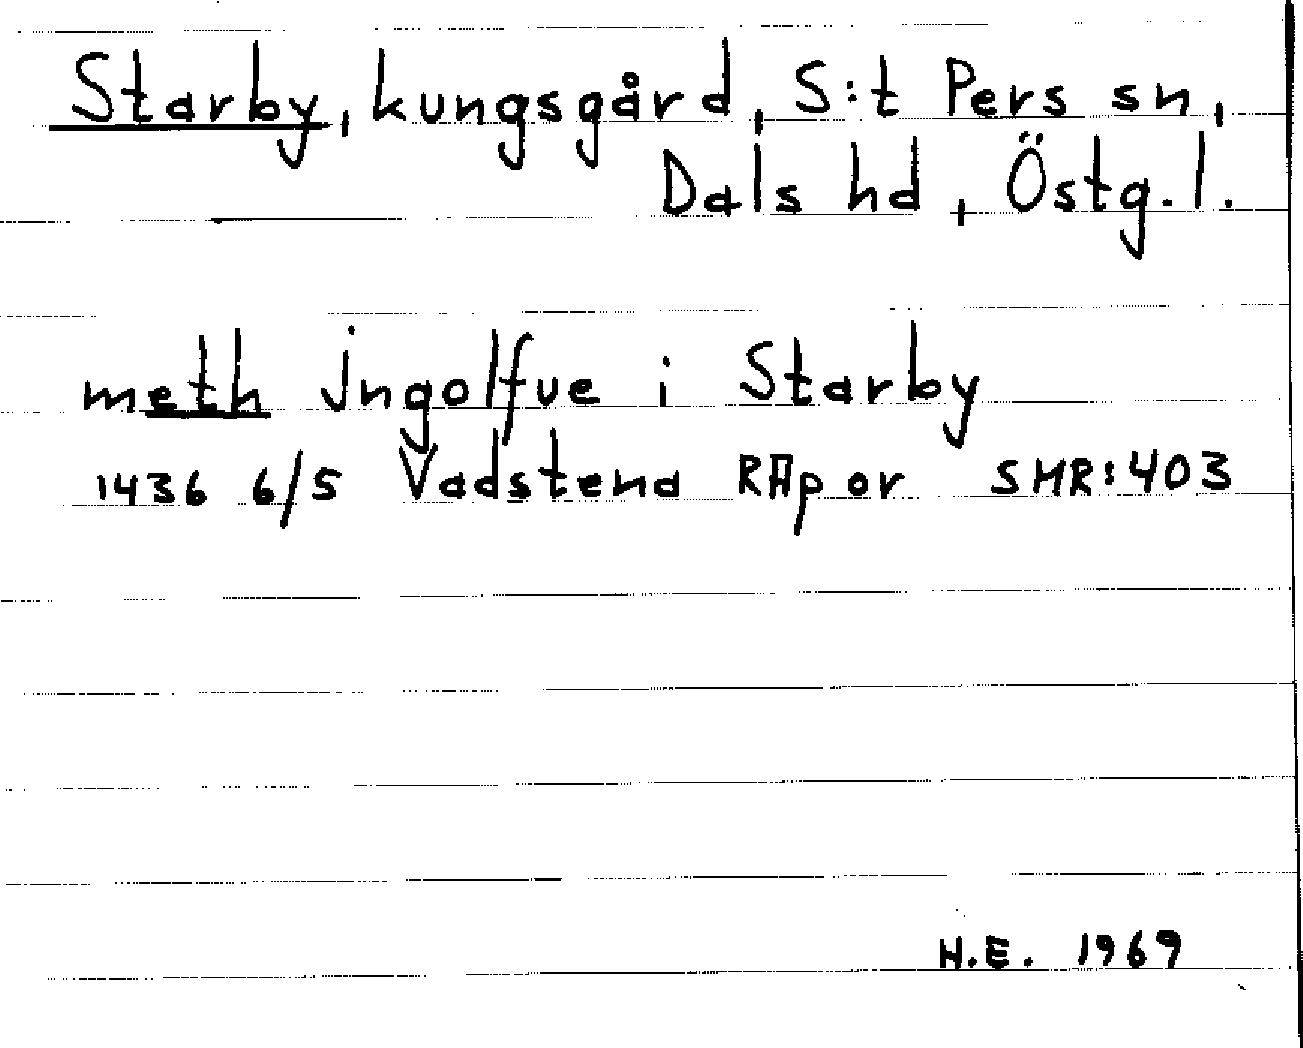 Starby, kungsgård, S:t Pers sn,
Dals hd, Östg.l.
meth jngolfue i Starby
1436 6/5 Vadstena RAp or SMR:403
H.E. 1969